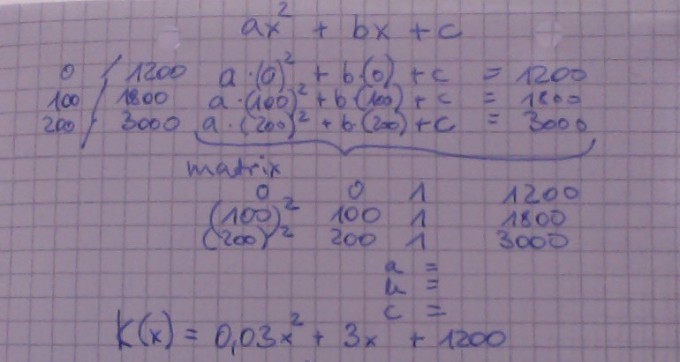 ax² + bx + c
0 / 1200 a·(0)² + b·(0) + c = 1200
100 / 1800 a·(100)² + b·(100) + c = 1800
200 / 3000 a·(200)² + b·(200) + c = 3000
matrix
0 0 1 1200
(100)² 100 1 1800
(200)² 200 1 3000
a =
b =
c =
K(x) = 0,03x² + 3x + 1200